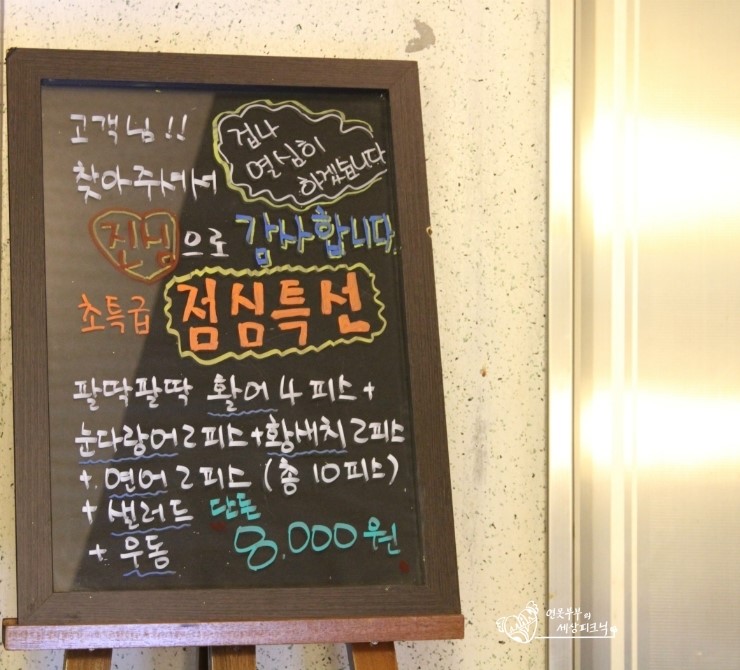 고객님!!
찾아주셔서
겁나
열심히
하겠습니다
진심으로 감사합니다.
초특급 점심특선
팔딱팔딱 활어 4피스+
눈다랑어 2피스+황새치 2피스
+연어 2피스 (총 10피스)
+샐러드 단돈
+우동 8,000원
연못부부의
세상피크닉